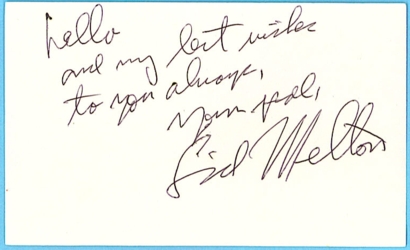 hello
and my best wishes
to you always,
Your pal,
Sid Melton